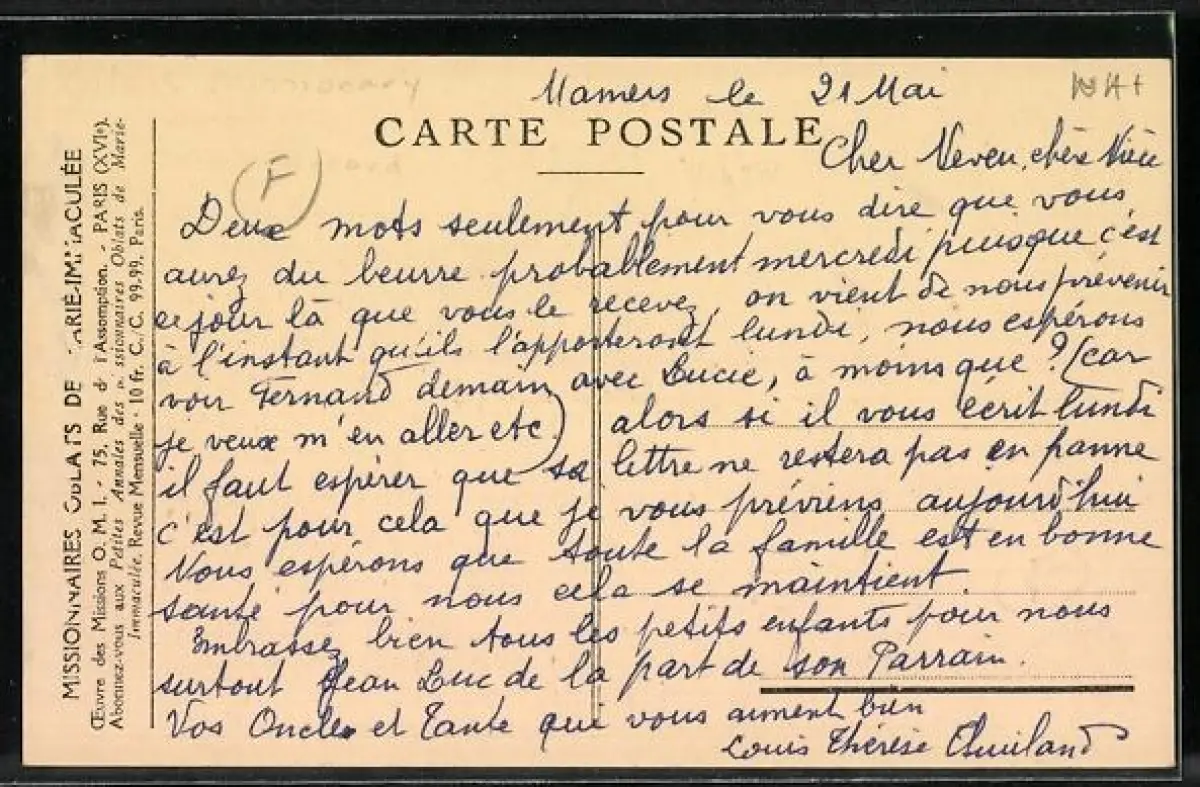 Mamers le 21 Mai
CARTE POSTALE
Cher Neveu, chère Nièce
F
Deux mots seulement pour vous dire que vous
aurez du beurre probablement mercredi puisque c'est
ce jour là que vous le recevez, on vient de nous prévenir
à l'instant qu'ils l'apporteront lundi, nous espérons
voir Fernand demain avec Lucie, à moins que ? (car
je veux m'en aller etc) alors si il vous écrit lundi
il faut espérer que sa lettre ne restera pas en panne
c'est pour cela que je vous préviens aujourd'hui
Nous espérons que toute la famille est en bonne
santé pour nous cela se maintient.
Embrassez bien tous les petits enfants pour nous
surtout Jean Luc de la part de son Parrain.
Vos Oncle et Tante qui vous aiment bien
Louis Thérèse
MISSIONNAIRES OBLATS DE MARIE-IMMACULÉE
Œuvre des Missions O. M. I. - 75, Rue de l'Assomption. - PARIS (XVIe).
Abonnez-vous aux Petites Annales des Missionnaires Oblats de Marie-
Immaculée. Revue Mensuelle - 10 fr. C. C. 99.99. Paris.